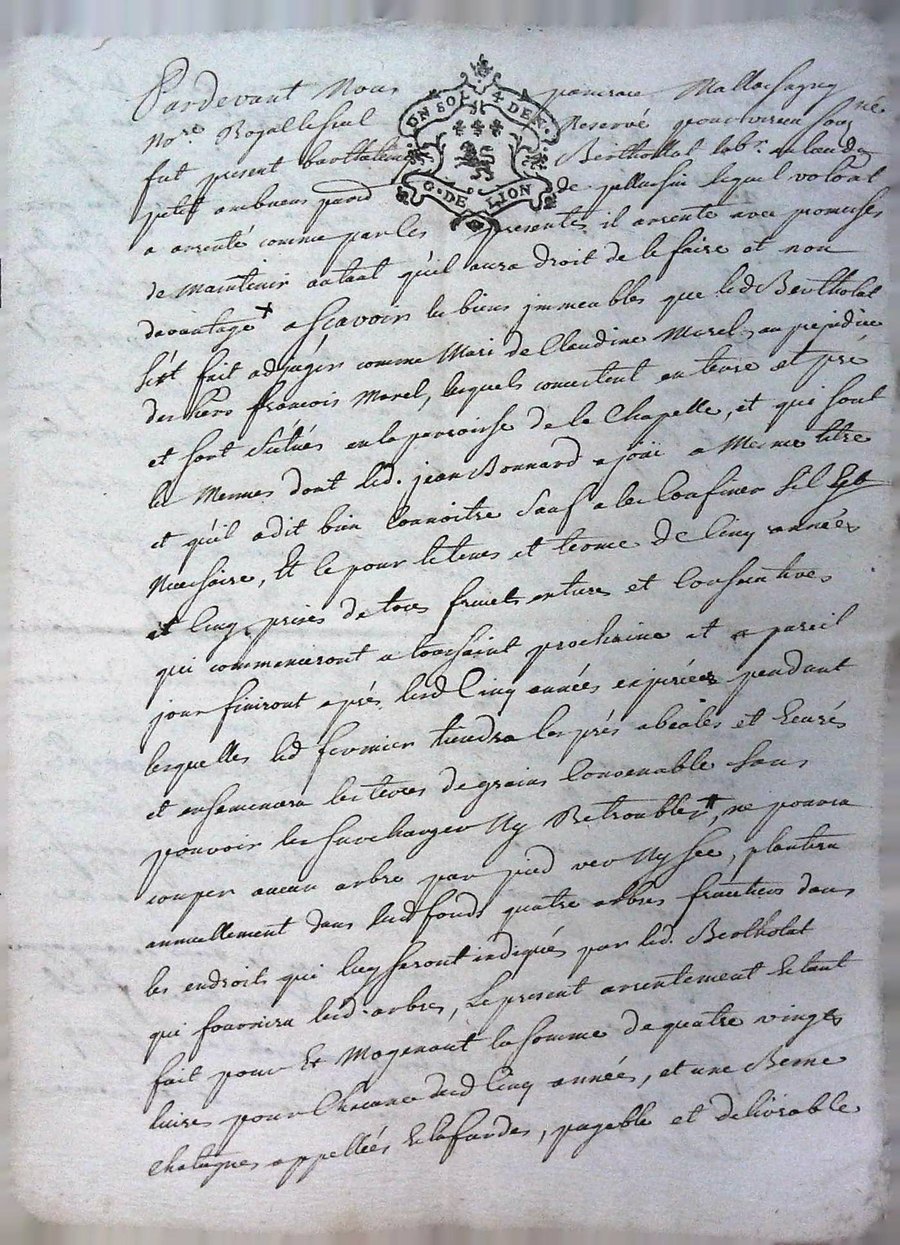 UN SOL. 4. DEN.
G. DE LION
Pardevant Nous
No.re Royal Reservé pour
fut present Berthollat lab.r
petit de pellussin lequel volont
a arenté comme par les presentes il arente avec promesses
de maintenir autant qu'il aura droit de le faire et non
davantage + a scavoir les biens jmmeubles que led Bertholat
s'est fait adjuger comme Mari de Claudine Morel, au prejudice
des hers francois Morel, lesquels concistent en terre et pré
et sont situés en la parroisse de la Chapelle, et qui sont
les Mesmes dont led. jean Bonnard a joüi a Mesme titre
et qu'il a dit bien Connoitre sauf a les Confiner sil Est
Necessaire, Et ce pour le tems et terme de Cinq années
et Cinq prises de tous fruits entiers et Consecutives
qui commenceront a toussaint prochaine et a pareil
jour finiront aprés lesd Cinq années expirées pendant
lesquelles led fermier tiendra les prés abealés et Ecurés
et ensemencera les terres de grains Convenable sans
pouvoir les surcharger Ny Retroubler #, ne pourra
couper aucun arbre par pied ver Ny sec, plantera
annuellement dans led fonds quatre arbres fruitiers dans
les endroits qui luy seront indiqués par led. Bertholat
qui fournira lesd. arbres, Le present arrentement Etant
fait pour Et Moyenant la somme de quatre vingt
livres pour Chacune desd Cinq années, et une Benne
Chatagnes appellées Eclafardes, payable et delivrable